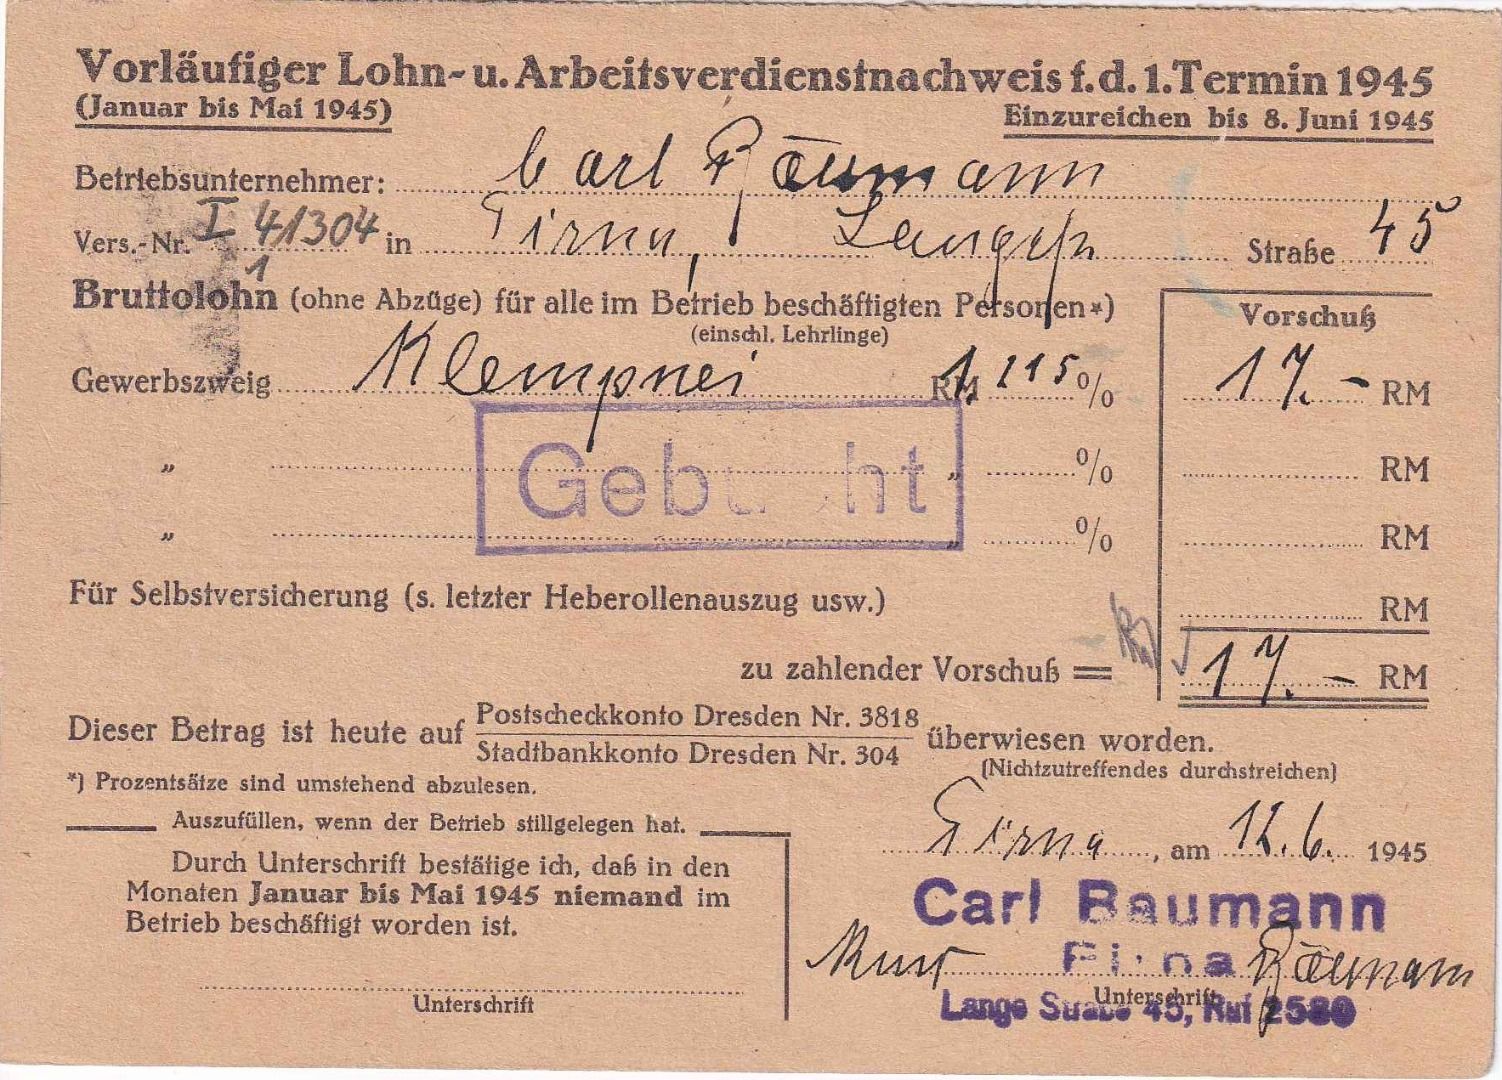 Vorläufiger Lohn- u. Arbeitsverdienstnachweis f. d. 1. Termin 1945
(Januar bis Mai 1945) Einzureichen bis 8. Juni 1945
Betriebsunternehmer: Carl Baumann
Vers.-Nr. I 41304 in Pirna, Langestr Straße 45
1
Bruttolohn (ohne Abzüge) für alle im Betrieb beschäftigten Personen*) Vorschuß
(einschl. Lehrlinge)
Gewerbszweig Klempner RM % 17.- RM
„ „ % RM
„ „ % RM
Für Selbstversicherung (s. letzter Heberollenauszug usw.) RM
Gebucht
zu zahlender Vorschuß = 17.- RM
Dieser Betrag ist heute auf Postscheckkonto Dresden Nr. 3818
Stadtbankkonto Dresden Nr. 304 überwiesen worden.
(Nichtzutreffendes durchstreichen)
*) Prozentsätze sind umstehend abzulesen.
Auszufüllen, wenn der Betrieb stillgelegen hat.
Durch Unterschrift bestätige ich, daß in den
Monaten Januar bis Mai 1945 niemand im
Betrieb beschäftigt worden ist.
Unterschrift
Pirna, am 12.6. 1945
Carl Baumann
Pirna
Kurt Baumann
Unterschrift
Lange Straße 45, Ruf 2580